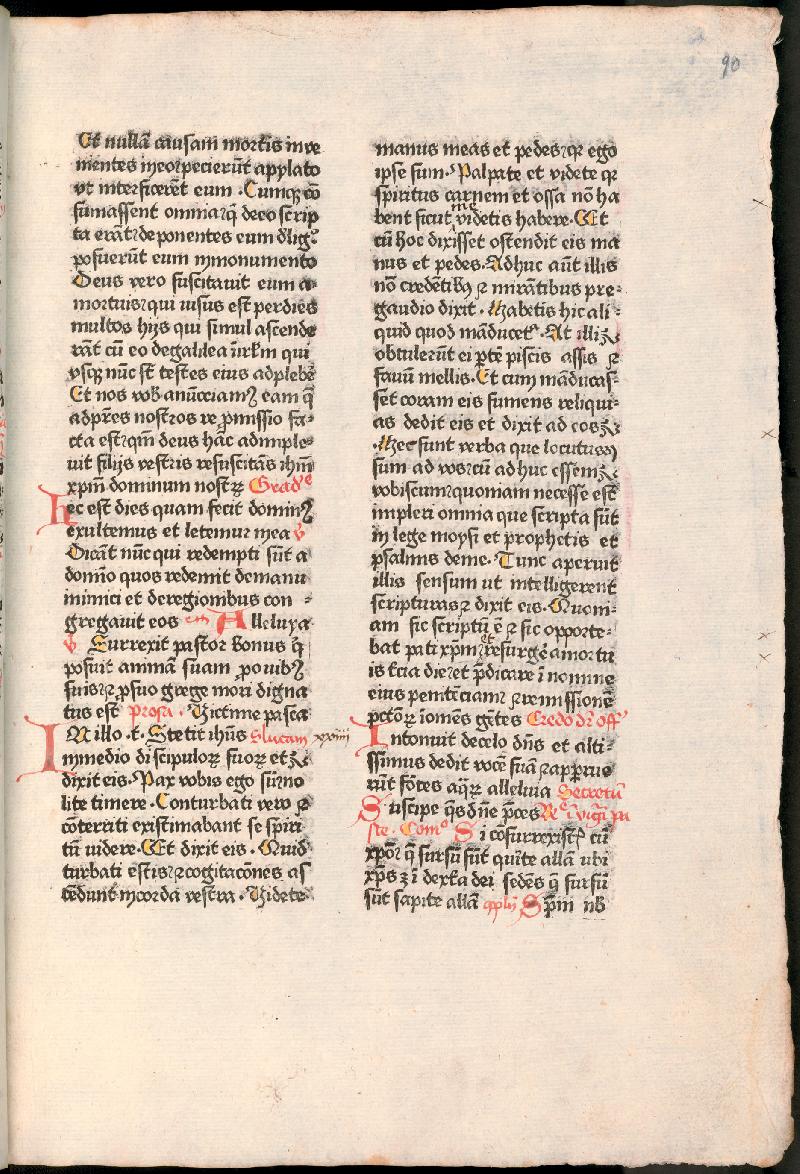 90
Et nullā causam mortis inve
nientes ineo ꝛ pecierūt appylato
vt interficerēt eum . Cumqꝫ cō
sumassent omnia q̄ deeo scrip
ta erāt ꝛ deponentes eum d̄ligꝰ
posuerūt eum inmonumento
Deus vero suscitauit eum a
mortuis ꝛ qui uisus est perdies
multos hijs qui simul ascende
rāt cū eo degalilea īirłm qui
vsqꝫ nūc st̄ testes eius adplebē
Et nos vob anūcciamꝰ eam q̄
adpr̄es nostros re promissio fa-
cta est ꝛ qm̄ deus hāc adimple-
uit filijs vestris resuscitās ihm̄
xpm̄ dominum nostꝝ Gradᵉ
hec est dies quam fecit dominꝰ
exultemus et letemur inea v
Dicāt nūc qui redempti sūt a
domīo quos redemit demanu
inimici et deregionibus con -
gregauit eos em Alleluya
v Surrexit pastor bonus q̄
posuit animā suam p ouibꝰ
suis ꝛ psuo grege mori digna
tus est prosa . Victime pasca
IN illo .t. Stetit ihūs Slucam xxiiii
inmedio discipuloꝝ suoꝝ et
dixit eis . Pax vobis ego sū no
lite timere . Conturbati vero ꝛ
cōterriti existimabant se spiri
tū uidere . Et dixit eis . Quid
turbati estis ꝛ cogitacōnes as
cēdunt incorda vestra . Videte
manus meas et pedes ꝛ qꝛ ego
ipse sum . Palpate et videte qꝛ
spiritus carnem et ossa nō ha
bent sicut me videtis habere . Et
cū hoc dixisset ostendit eis ma
nus et pedes . Adhuc aūt illis
nō credētibꝫ ꝛ mirātibus pre -
gaudio dixit . Habetis hic ali -
quid quod māducet᷑ . At illi
obtulerūt ei ptē piscis assis ꝛ
fauū mellis . Et cum māducas-
set coram eis sumens reliqui-
as dedit eis et dixit ad eos
. Hec sunt verba que locutus
sum ad vos ꝛ cū ad huc essem
vobiscum ꝛ quoniam necesse est
impleri omnia que scripta sūt
in lege moysi et prophetis et
psalmis deme . Tunc aperuit
illis sensum ut intelligerent
scripturas ꝛ dixit eis . Quoni-
am sic scriptū ē ꝛ sic opporte-
bat pati xpm̄ et resurgē amortu
is tcia die ꝛ et p̄dicare ī nomine
eius penitēciam ꝛ remissionē
pctōꝝ īomēs gētes Credo dr̄ off᷑
Intonuit decelo dn̄s et alti-
ssimus dedit vocē suā ꝛ apparue
rūt fōtes aqꝝ alleluia Secretū
Suscipe qs dn̄e p̄ces Reᵉ ī vigīi pa
ste . Comᵒ Si cōsurrexist᷑ cū
xpō ꝛ q̄ sursū sūt quite allā ubi
xps ꝫ ī dext̄a dei sedēs q̄ sursū
sūt sapite allā 9plij Spm̄ nb